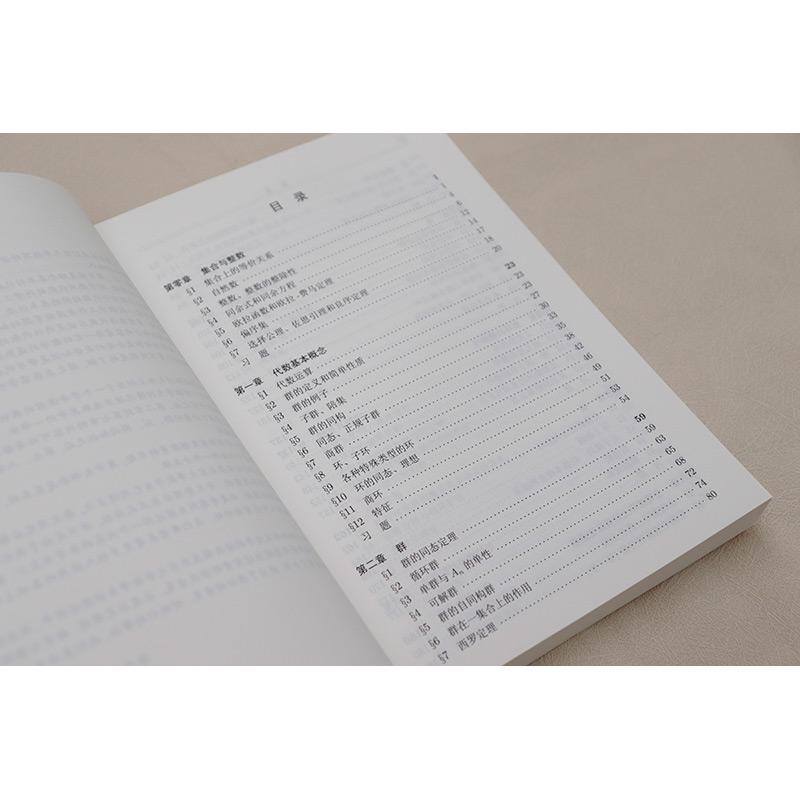 目 录
第零章 集合与整数 1
§1 集合上的等价关系 1
§2 自然数 4
§3 整数、整数的整除性 6
§4 同余式和同余方程 12
§5 欧拉函数和欧拉-费马定理 14
§6 偏序集 17
§7 选择公理、佐恩引理和良序定理 18
习 题 20
第一章 代数基本概念 23
§1 代数运算 23
§2 群的定义和简单性质
§3 群的例子 27
§4 子群、陪集 30
§5 群的同构 33
§6 同态、正规子群 35
§7 商群 38
§8 环、子环 42
§9 各种特殊类型的环 46
§10 环的同态、理想 49
§11 商环 51
§12 特征 53
习 题 54
第二章 群 59
§1 群的同态定理 59
§2 循环群 63
§3 单群与 Aₙ 的单性 65
§4 可解群 68
§5 群的自同构群 72
§6 群在一集合上的作用 74
§7 西罗定理 80